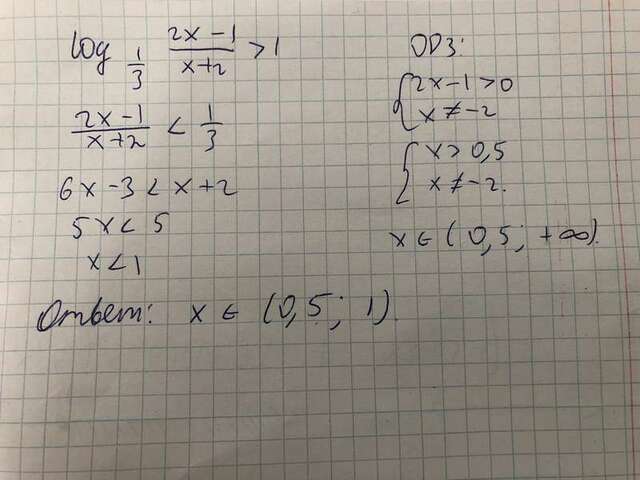 log_{1/3} (2x-1)/(x+2) > 1
(2x-1)/(x+2) < 1/3
6x-3 < x+2
5x < 5
x < 1
Ответ: x ∈ (0,5; 1)
ОДЗ:
{ 2x-1>0
x ≠ -2
{ x > 0,5
x ≠ -2.
x ∈ (0,5; +∞).